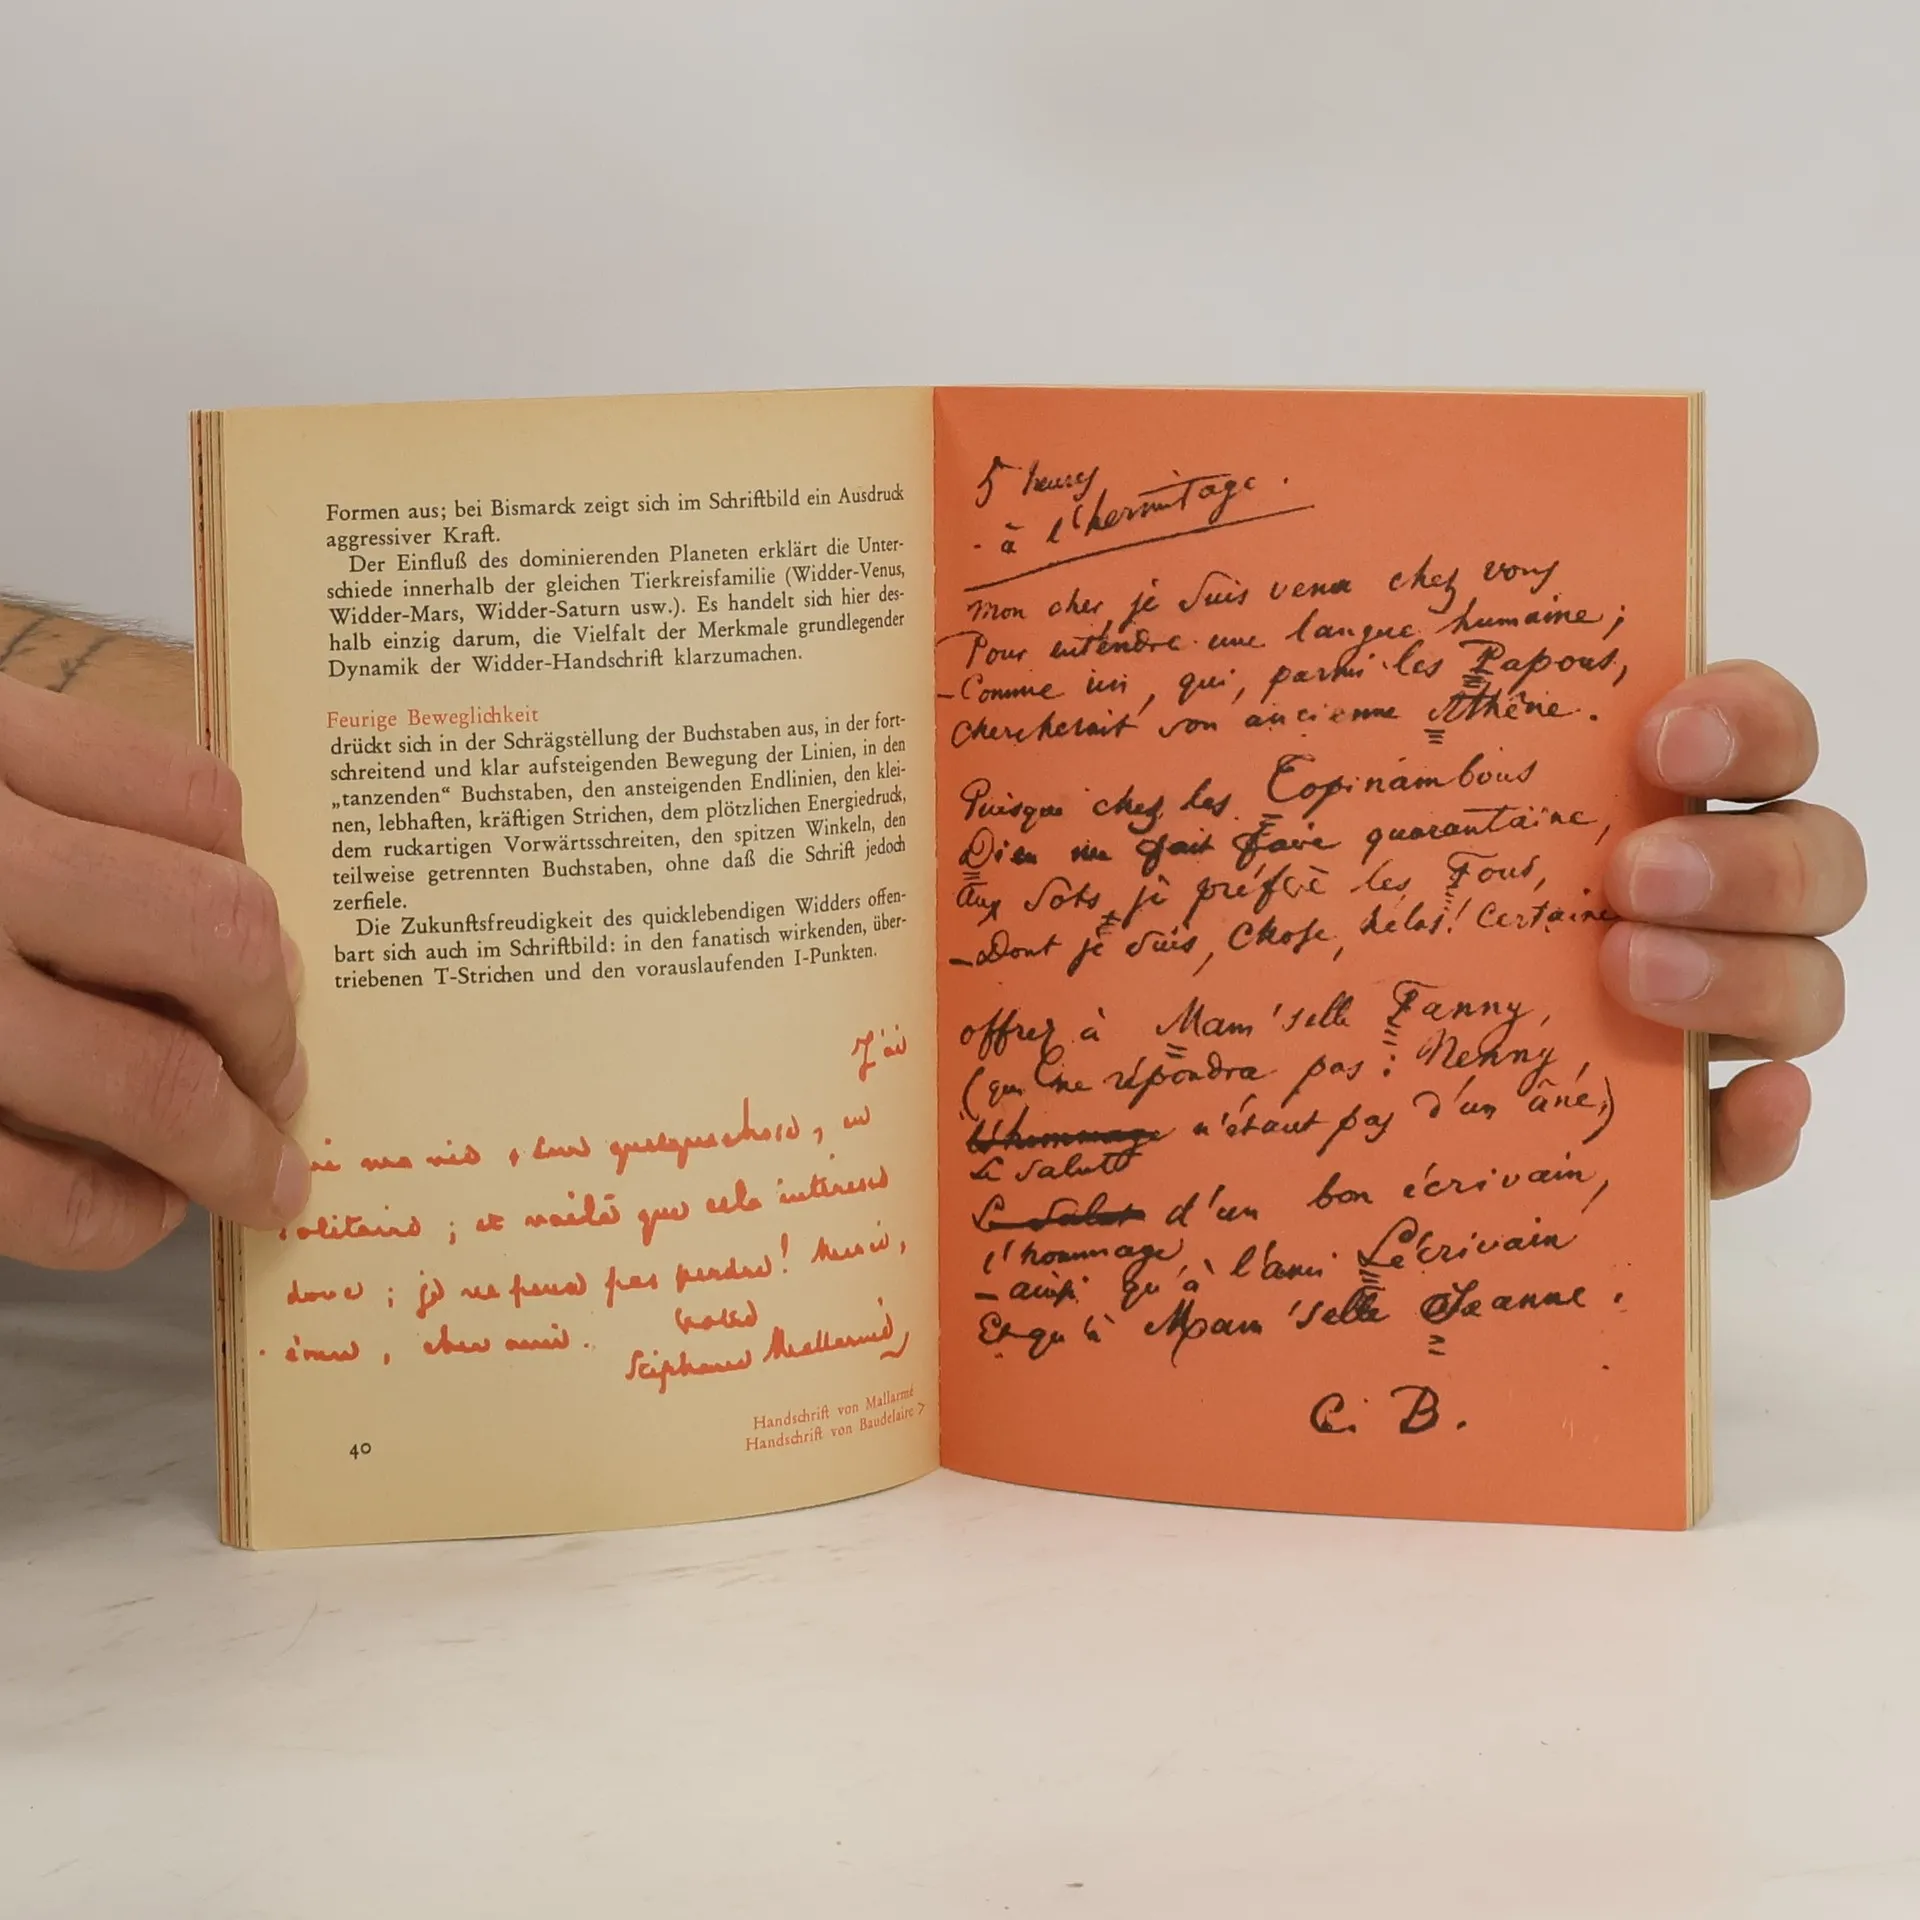 Formen aus; bei Bismarck zeigt sich im Schriftbild ein Ausdruck
aggressiver Kraft.
Der Einfluß des dominierenden Planeten erklärt die Unter-
schiede innerhalb der gleichen Tierkreisfamilie (Widder-Venus,
Widder-Mars, Widder-Saturn usw.). Es handelt sich hier des-
halb einzig darum, die Vielfalt der Merkmale grundlegender
Dynamik der Widder-Handschrift klarzumachen.
Feurige Beweglichkeit
drückt sich in der Schrägstellung der Buchstaben aus, in der fort-
schreitend und klar aufsteigenden Bewegung der Linien, in den
„tanzenden“ Buchstaben, den ansteigenden Endlinien, den klei-
nen, lebhaften, kräftigen Strichen, dem plötzlichen Energiedruck,
dem ruckartigen Vorwärtsschreiten, den spitzen Winkeln, den
teilweise getrennten Buchstaben, ohne daß die Schrift jedoch
zerfiele.
Die Zukunftsfreudigkeit des quicklebendigen Widders offen-
bart sich auch im Schriftbild: in den fanatisch wirkenden, über-
triebenen T-Strichen und den vorauslaufenden I-Punkten.
J'ai
ma vie, quelque chose, en
solitaire ; et voilà que cela intéresse
donc ; je ne peux pas perdre! Merci,
cher ami. Votre
Stéphane Mallarmé
Handschrift von Mallarmé
Handschrift von Baudelaire >
40
5 heures
- à l'hermitage.
Mon cher, je suis venu chez vous
Pour entendre une langue humaine ;
- Comme un, qui, parmi les Papous,
Chercherait son ancienne Athêne.
Puisque chez les Topinambous
Dieu me fait faire quarantaine,
Aux Sots, je préfère les Fous,
- Dont je suis, Chose, hélas! Certaine
Offrez à Mam'selle Fanny,
(qui ne répondra pas : Nenny,
L'hommage n'étant pas d'un âne,)
Le salut
Le salut d'un bon écrivain,
l'hommage
- ainsi qu'à l'ami Lécrivain
Et qu'à Mam'selle Jeanne.
C. B.